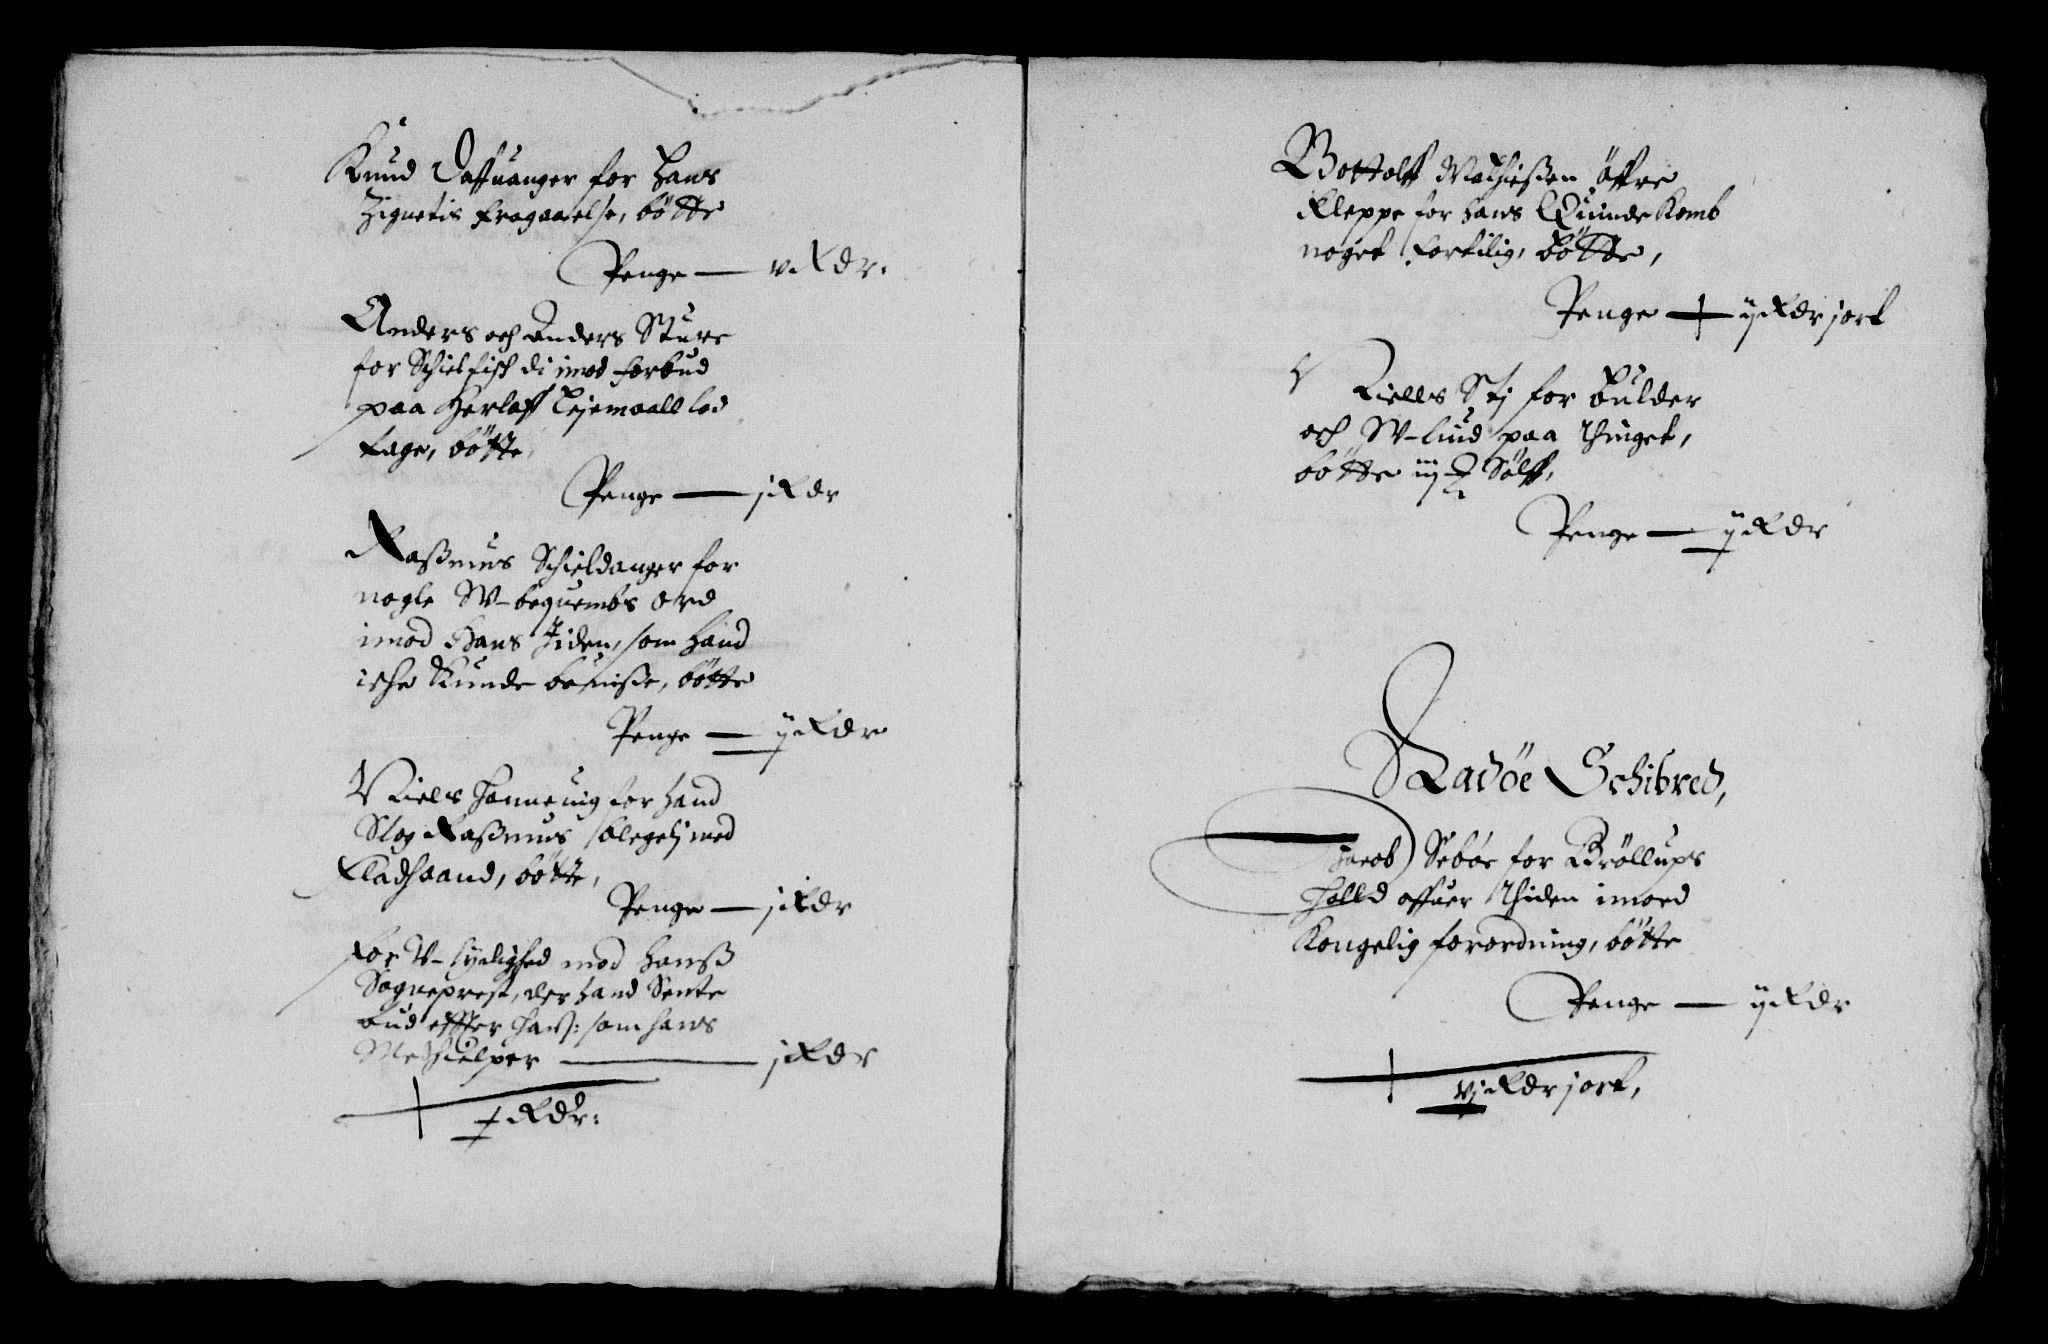 Knud Daffuanger for hans
Zignetis fragaaelse, bötte
Penge — v Rdr.
Anders och Anders Sture
for Schielfisk di imod forbud
paa Herlaff Lejemaall lod
tage, bötte,
Penge — j Rdr
Rassmus Schieldanger for
nogle W-bequembs ord
imod Hans Jiden, som hand
iche Kunde beuisse, bötte
Penge — ij Rdr
Niels Hanneuig for hand
Slog Rassmus med
Fladhaand, bötte,
Penge — j Rdr
For W-lydighed mod hanss
Sogneprest, der hand Sente
bud effter ham: som hans
Medhielper — j Rdr
x Rdr:
Bottolff Mathiessen öffre
Kleppe for hans Quinde Komb
noget fortilig, bötte,
Penge — ij Rdr j ort
Niells Stj for bulder
och W-liud paa Thinget,
bötte iij Sölff,
Penge — ij Rdr
Radöe Schibred,
Jacob Seböe for Bröllups
Holld offuer Thiden imoed
Kongelig forordning, bötte
Penge — ij Rdr
vj Rdr j ort,